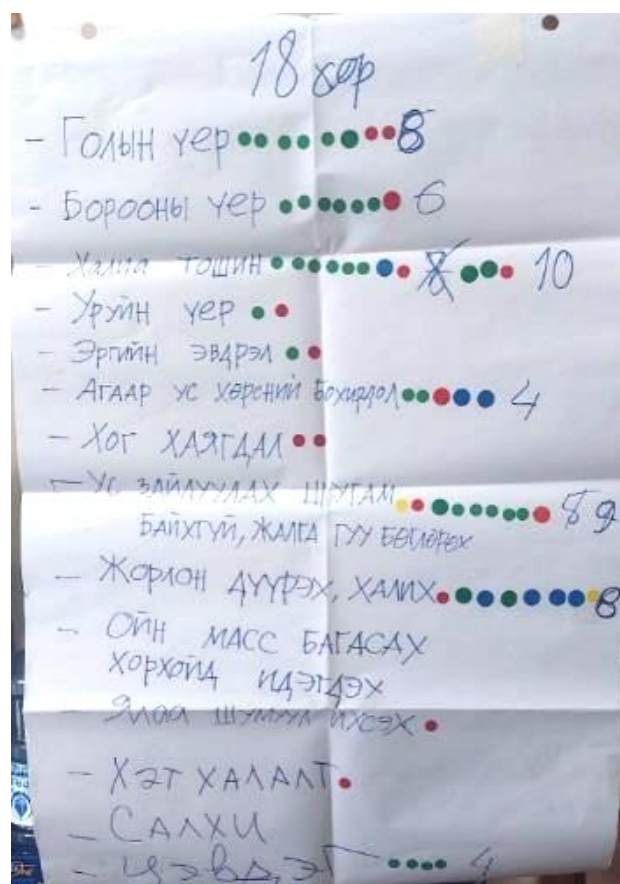 18 хөр
- Голын үер 8
- Борооны үер 6
- Халиа тошин 8 10
- Уруйн үер
- Эргийн эвдрэл
- Агаар ус хөрсний бохирдол 4
- Хог ХАЯГДАЛ
- Ус ЗАЙЛУУЛАХ ШУГАМ 8 9
БАЙХГҮЙ, ЖАЛГА ГУУ БӨГЛӨРӨХ
- Жорлон дүүрэх, ХАЛИХ 8
- Ойн МАСС БАГАСАХ
ХОРХОЙД ИДЭГДЭХ
- Ялаа шумуул ихсэх
- ХЭТ ХАЛАЛТ
- САЛХИ
- ЦЭВДЭГ 4